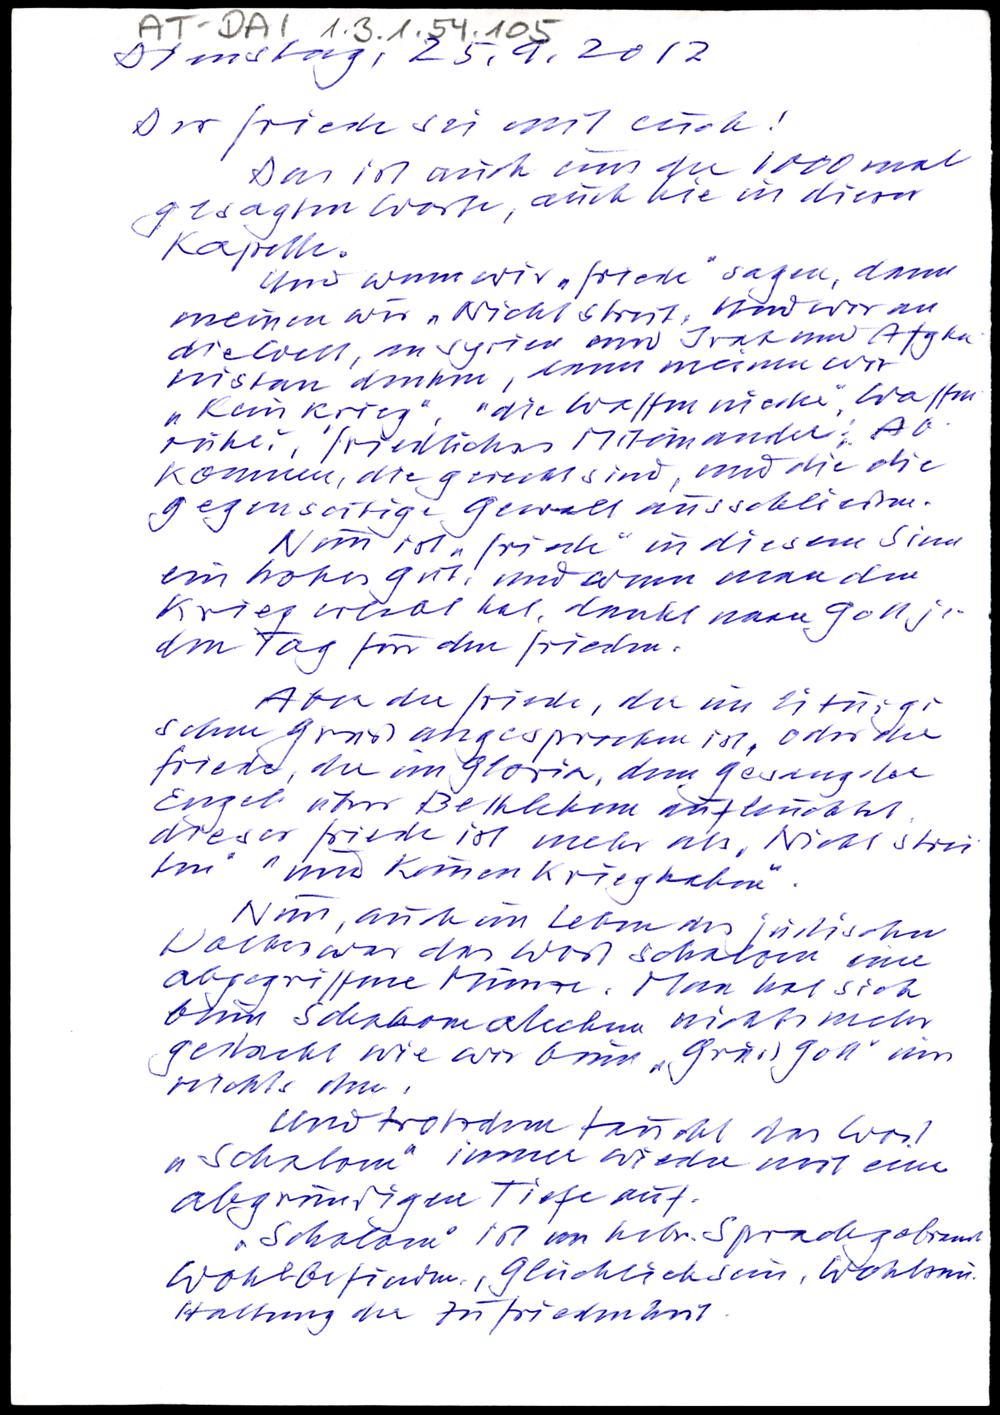 AT-DAI 1.3.1.54.105
Dienstag, 25.9.2012
Der Friede sei mit euch!
Das ist auch eins der 1000 mal
gesagten Worte, auch hie in dieser
Kapelle.
Und wenn wir „Friede" sagen, dann
meinen wir „Nicht Streit, und wir an
die Welt, an Syrien und Irak und Afgha
nistan denken, dann meinen wir
„Kein Krieg", "die Waffen nieder", Waffen
ruhe", friedliches Miteinander", Ab
kommen, die gerecht sind, und die die
gegenseitige Gewalt ausschließen.
Nun ist „Friede" in diesem Sinn
ein hohes Gut, und wenn man den
Krieg erlebt hat, dankt man Gott je-
den Tag für den Frieden.
Aber der Friede, der im liturgi
schen Gruß angesprochen ist, oder der
Friede, der im Gloria, dem Gesang der
Engel über Bethlehem aufleuchtet,
dieser Friede ist mehr als „Nicht strei
ten" "und keinen Krieg haben".
Nun, auch im Leben des jüdischen
Volkes war das Wort Schalom eine
abgegriffene Münze. Man hat sich
beim Schalom alechem nichts mehr
gedacht wie wir beim „Grüß Gott" uns
nichts den.
Und trotzdem taucht das Wort
„Schalom" immer wieder mit einer
abgründigen Tiefe auf.
„Schalom" ist im hebr. Sprachgebrauch
Wohlbefinden, Glücklichsein, Wohlsein.
Haltung der Zufriedenheit.